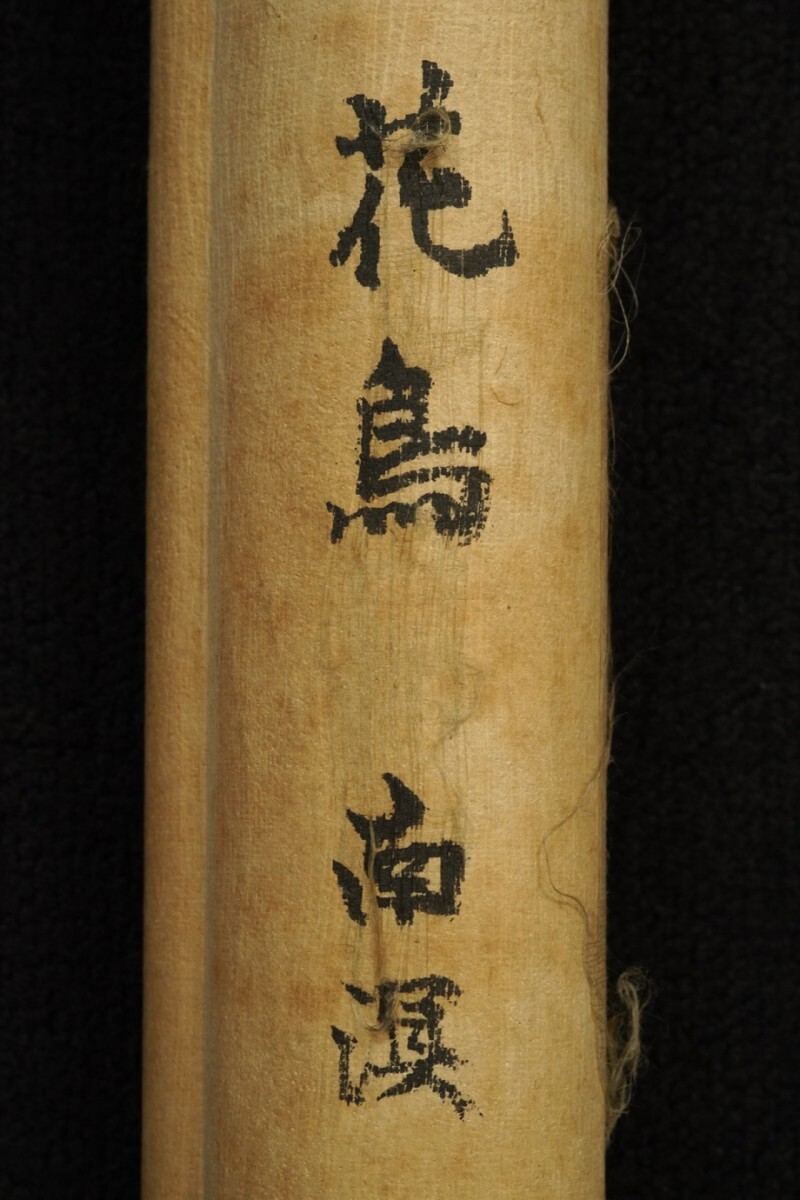 花鳥 南溟